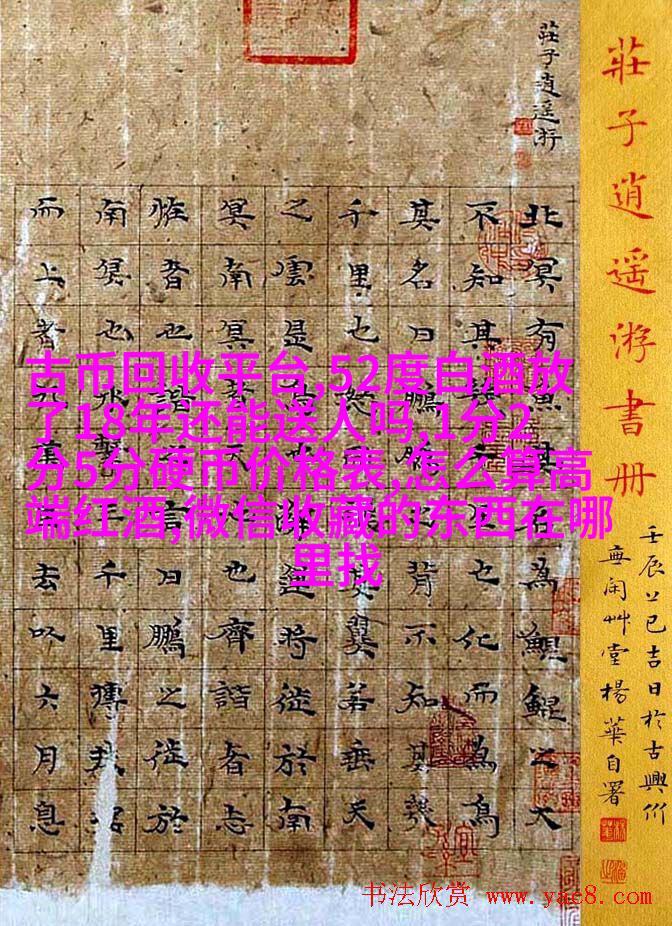 古币回收平台,52度白酒放
了18年还能送人吗,1分2
分5分硬币价格表,怎么算高
端红酒,微信收藏的东西在哪
里找
莊子逍遥游書册
壬辰上巳吉日於古興州
無闲艸堂楊華自署
莊子逍遥游
北冥有魚其名為鯤鯤之大
不知其幾千里也化而為鳥
其名曰鵬鵬之背不知其幾
千里也怒而飛其翼若垂天
之雲是鳥也海運將徙於南
冥南冥者天池也齊諧者志
恠者也諧之言曰鵬之徙於
南冥也水擊三千里摶扶搖
而上者九萬里去以六月息
书法欣赏 www.yac8.com